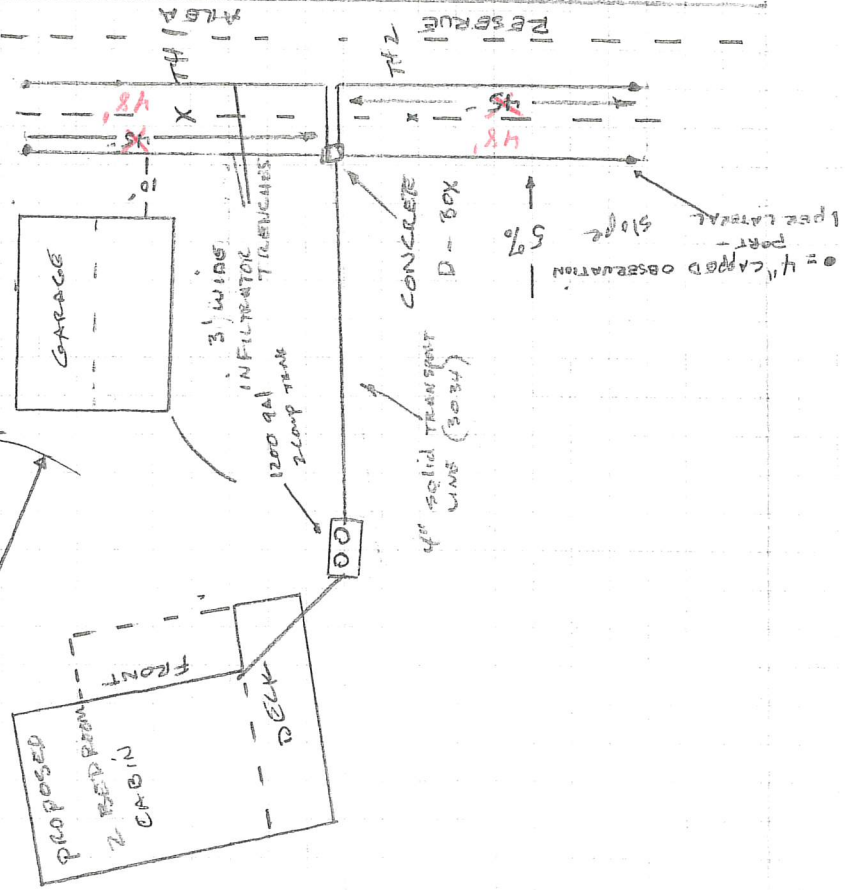 RESERVE
AREA
TH 1
TH 2
X
x
45'
48'
45'
48'
10'
GARAGE
3' WIDE
INFILTRATOR
TRENCHES
CONCRETE
D - BOX
5%
slope
● = 4" CAPPED OBSERVATION
PORT -
1 PER LATERAL
1200 gal
2 comp TANK
4" solid TRANSPORT
LINE (3034)
FRONT
DECK
PROPOSED
2 BEDROOM
CABIN